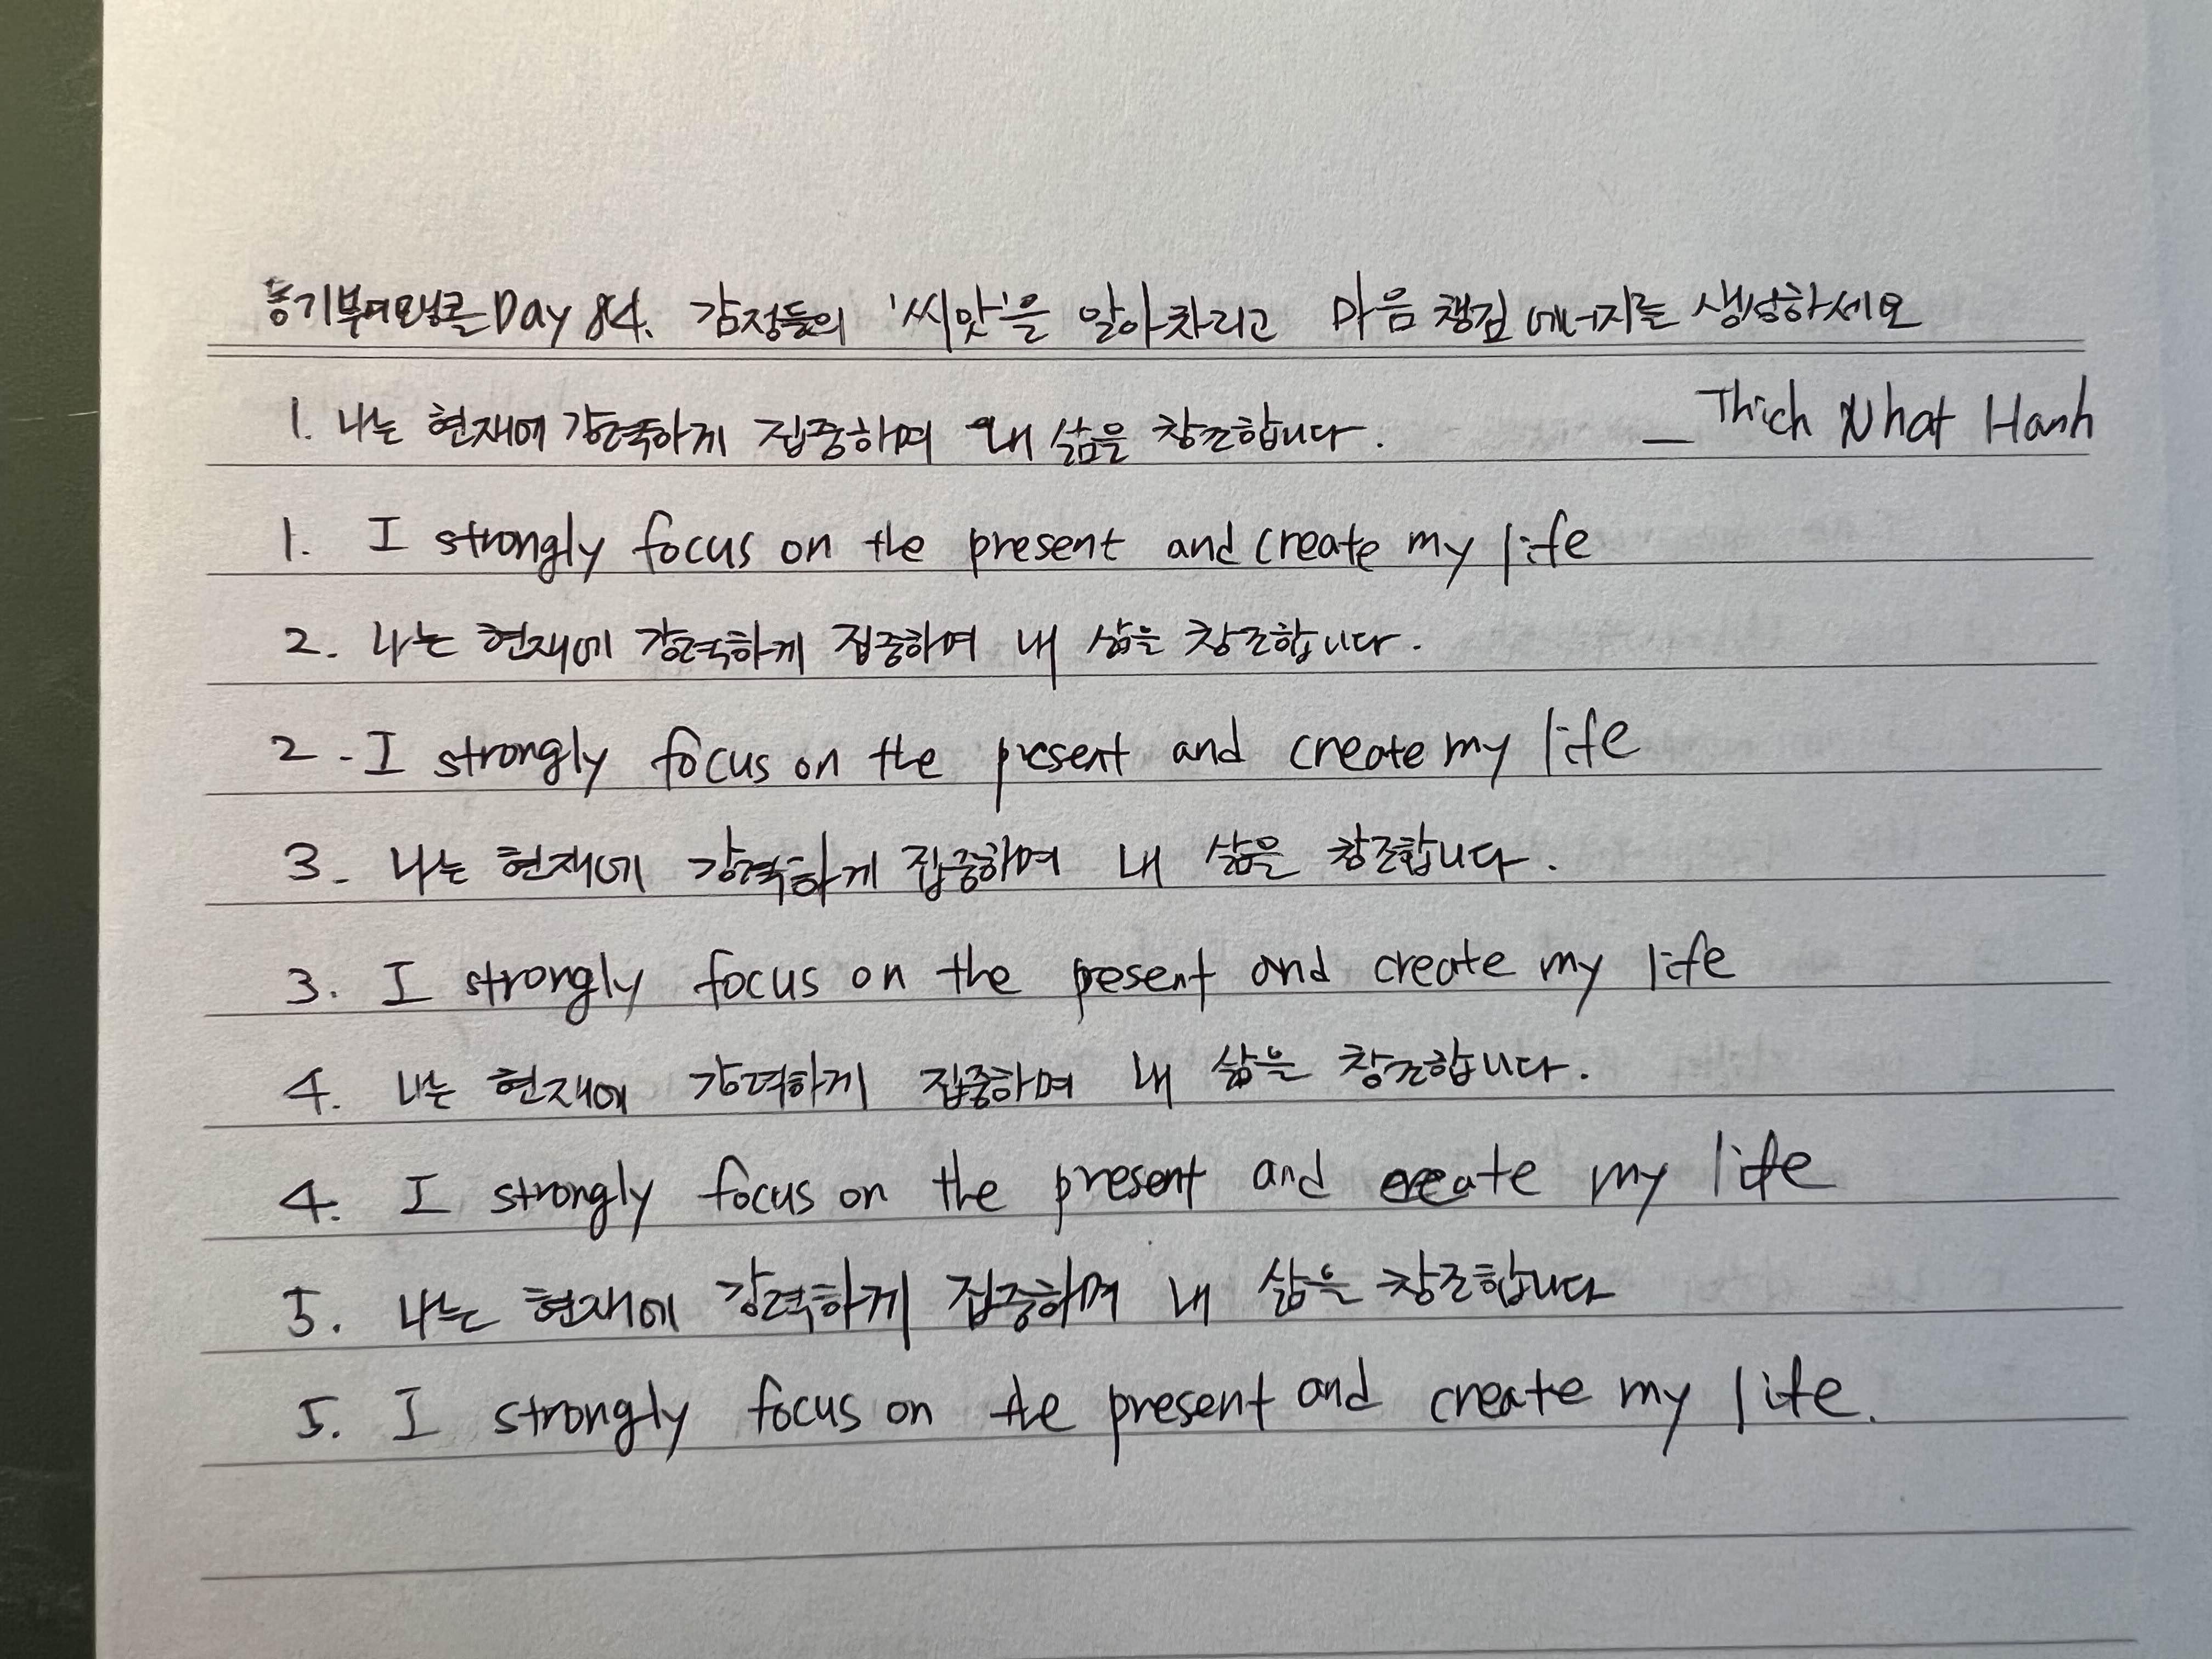 동기부여모닝콜 Day 84. 감정들의 '씨앗'을 알아차리고 마음 챙김 에너지를 생성하세요
1. 나는 현재에 강력하게 집중하며 내 삶을 창조합니다. — Thich Nhat Hanh
1. I strongly focus on the present and create my life
2. 나는 현재에 강력하게 집중하며 내 삶을 창조합니다.
2 - I strongly focus on the present and create my life
3. 나는 현재에 강력하게 집중하며 내 삶을 창조합니다.
3. I strongly focus on the present and create my life
4. 나는 현재에 강력하게 집중하며 내 삶을 창조합니다.
4. I strongly focus on the present and create my life
5. 나는 현재에 강력하게 집중하며 내 삶을 창조합니다
5. I strongly focus on the present and create my life.